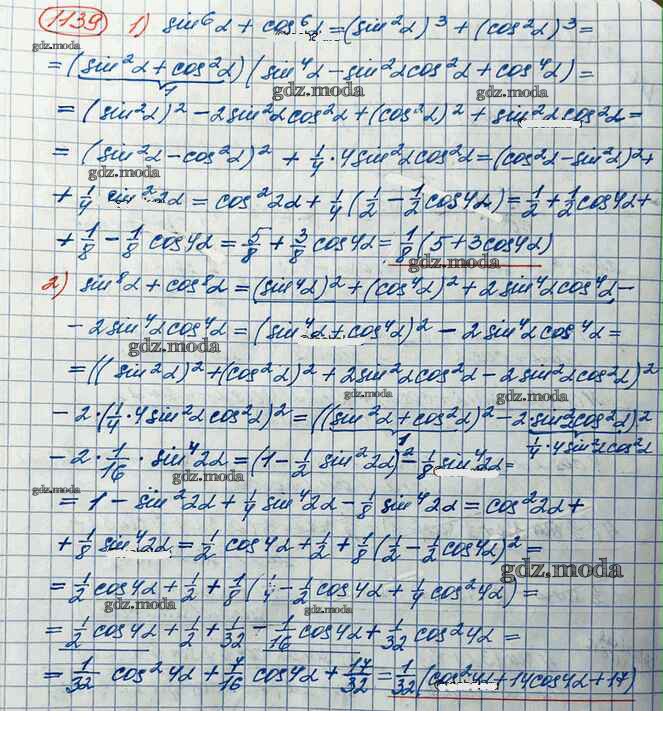 1139 1) sin⁶α + cos⁶α = (sin²α)³ + (cos²α)³ =
gdz.moda
= (sin²α + cos²α)(sin⁴α - sin²α cos²α + cos⁴α) =
1 gdz.moda gdz.moda
= (sin²α)² - 2sin²α cos²α + (cos²α)² + sin²α cos²α =
= (sin²α - cos²α)² + 1/4 · 4sin²α cos²α = (cos²α - sin²α)² +
gdz.moda
+ 1/4 sin²2α = cos²2α + 1/4 (1/2 - 1/2 cos4α) = 1/2 + 1/2 cos4α +
+ 1/8 - 1/8 cos4α = 5/8 + 3/8 cos4α = 1/8 (5 + 3cos4α)
gdz.moda
2) sin⁸α + cos⁸α = (sin⁴α)² + (cos⁴α)² + 2sin⁴α cos⁴α -
- 2sin⁴α cos⁴α = (sin⁴α + cos⁴α)² - 2sin⁴α cos⁴α =
gdz.moda
= ((sin²α)² + (cos²α)² + 2sin²α cos²α - 2sin²α cos²α)²
gdz.moda gdz.moda
- 2·(1/4 · 4sin²α cos²α)² = ((sin²α + cos²α)² - 2·sin²α cos²α)²
1 1/4 · 4sin²α cos²α
- 2 · 1/16 · sin⁴2α = (1 - 1/2 sin²2α)² - 1/8 sin⁴2α =
gdz.moda
= 1 - sin²2α + 1/4 sin⁴2α - 1/8 sin⁴2α = cos²2α +
gdz.moda
+ 1/8 sin⁴2α = 1/2 cos4α + 1/2 + 1/8 (1/2 - 1/2 cos4α)² =
gdz.moda
= 1/2 cos4α + 1/2 + 1/8 (1/4 - 1/2 cos4α + 1/4 cos²4α) =
gdz.moda
= 1/2 cos4α + 1/2 + 1/32 - 1/16 cos4α + 1/32 cos²4α =
= 1/32 cos²4α + 7/16 cos4α + 17/32 = 1/32 (cos²4α + 14cos4α + 17)
gdz.moda